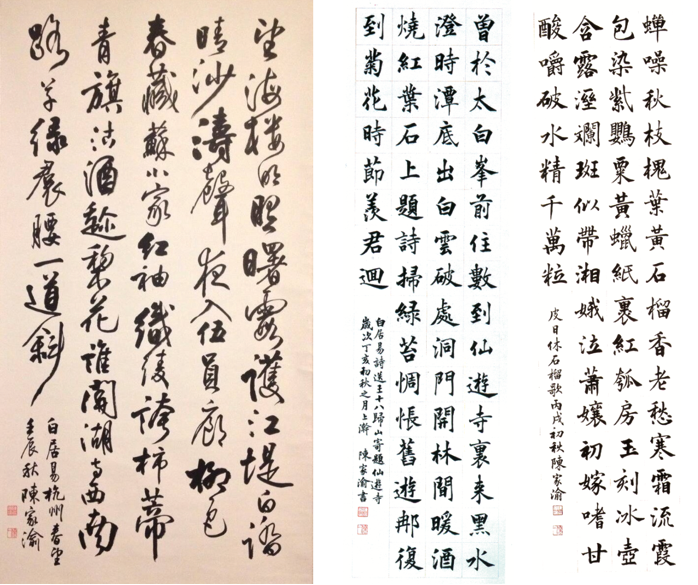 蟬噪秋枝槐葉黃石榴香老愁寒霜流霞
包染紫鸚粟黃蠟紙裹紅瓠房玉刻冰壺
含露溼斕斑似帶湘娥泣蕭孃初嫁嗜甘
酸嚼破水精千萬粒
皮日休石榴歌丙戌初秋陳家渝
曾於太白峯前住數到仙遊寺裏來黑水
澄時潭底出白雲破處洞門開林間暖酒
燒紅葉石上題詩掃綠苔惆悵舊遊那復
到菊花時節羨君迴
白居易詩送王十八歸山寄題仙遊寺
歲次丁亥初秋之月上澣 陳家渝書
望海樓明照曙霞護江堤白蹋
晴沙濤聲夜入伍員廟柳色
春藏蘇小家紅袖織綾誇柿蒂
青旗沽酒趁梨花誰開湖寺西南
路草綠裠腰一道斜
白居易杭州春望
壬辰秋陳家渝